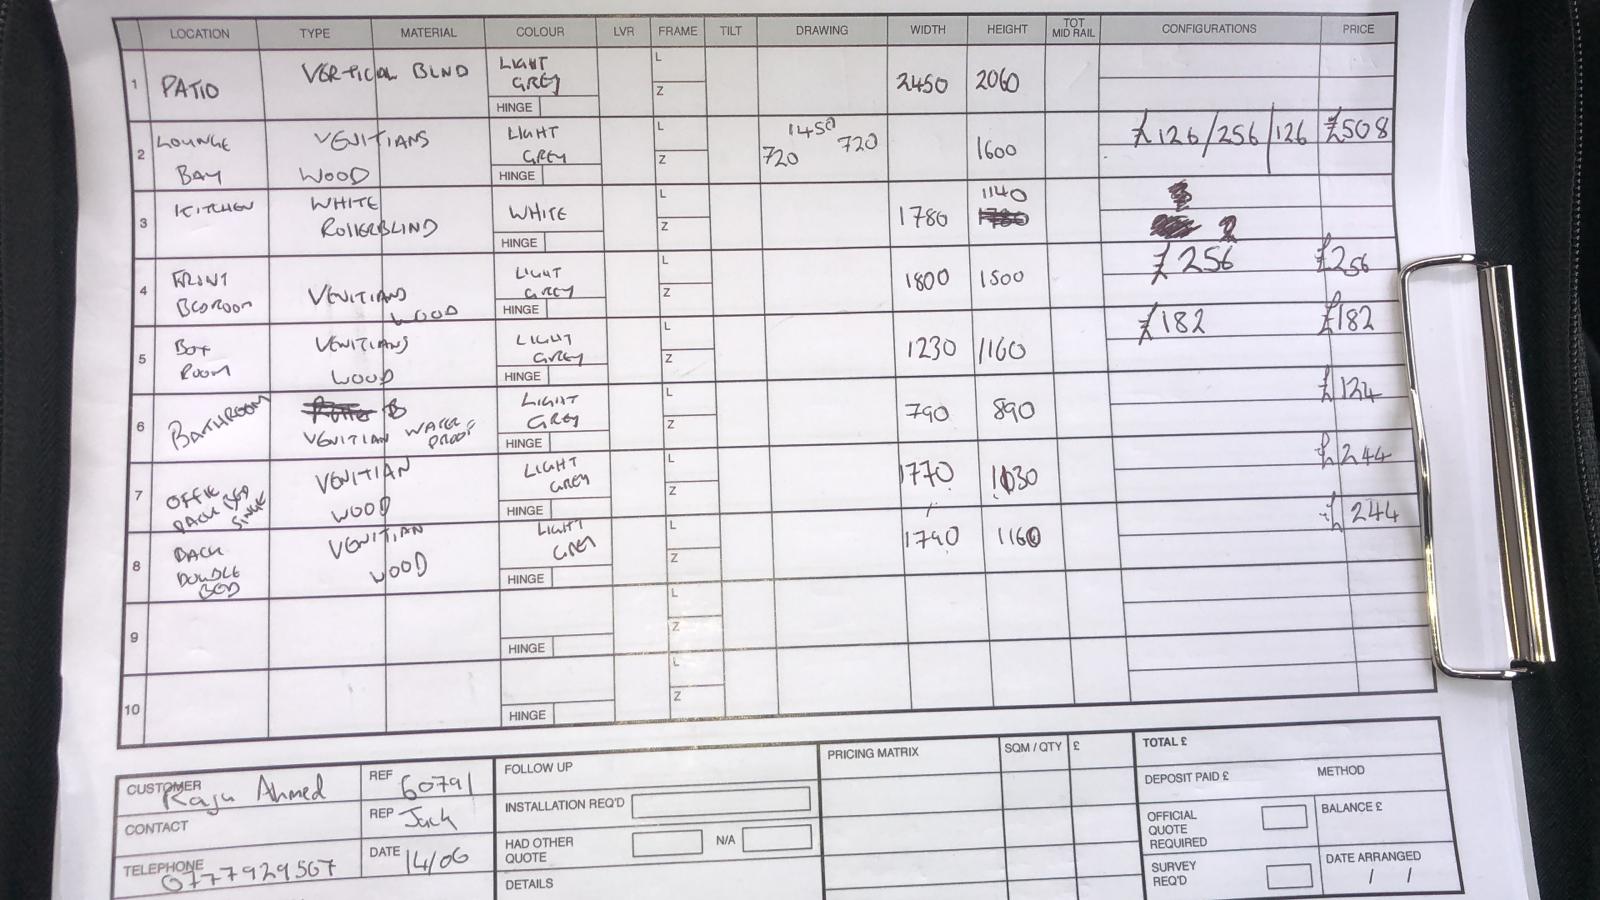 LOCATION TYPE MATERIAL COLOUR LVR FRAME TILT DRAWING WIDTH HEIGHT TOT MID RAIL CONFIGURATIONS PRICE
1 PATIO VERTICIAL BLND LIGHT GREY HINGE L Z 2450 2060
2 LOUNGE BAY VENITIANS WOOD LIGHT GREY HINGE L Z 720 1450 720 1600 £126/256/126 £508
3 KITCHEN WHITE ROLLERBLIND WHITE HINGE L Z 1780 1140
4 FRONT BEDROOM VENITIANS WOOD LIGHT GREY HINGE L Z 1800 1500 £256 £256
5 BOX ROOM VENITIANS WOOD LIGHT GREY HINGE L Z 1230 1160 £182 £182
6 BATHROOM B VENITIAN WATER PROOF LIGHT GREY HINGE L Z 790 890 £124
7 OFFIC BACK BED SINGLE VENITIAN WOOD LIGHT GREY HINGE L Z 1770 1030 £244
8 BACK DOUBLE BED VENITIAN WOOD LIGHT GREY HINGE L Z 1790 1160 £244
9 HINGE L Z
10 HINGE L Z
CUSTOMER Raju Ahmed
REF 60791
CONTACT
REP Jack
TELEPHONE 0777929567
DATE 14/06
FOLLOW UP
INSTALLATION REQ'D
HAD OTHER QUOTE N/A
DETAILS
PRICING MATRIX SQM / QTY £
TOTAL £
DEPOSIT PAID £ METHOD
OFFICIAL QUOTE REQUIRED
BALANCE £
SURVEY REQ'D
DATE ARRANGED
/ /